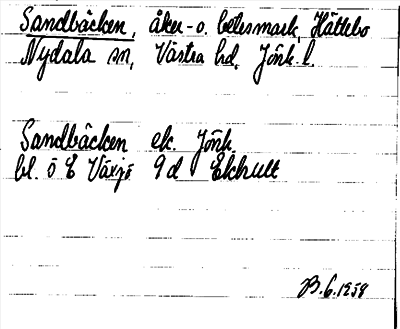 Sandbäcken, åker- o. betesmark, Hättebo
Nydala sn, Västra hd, Jönk. l.
Sandbäcken ek. Jönk.
bl. ö E Växjö 9d Ekhult
B.G. 1958